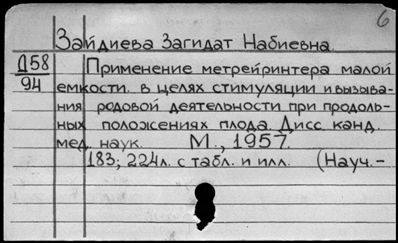 6
Зайдиева Загидат Набиевна.
Д58
94
Применение метрейринтера малой
емкости в целях стимуляции и вызыва-
ния родовой деятельности при продоль-
ных положениях плода. Дисс. канд.
мед. наук. М., 1957.
183; 224л. с табл. и илл. (Науч.-